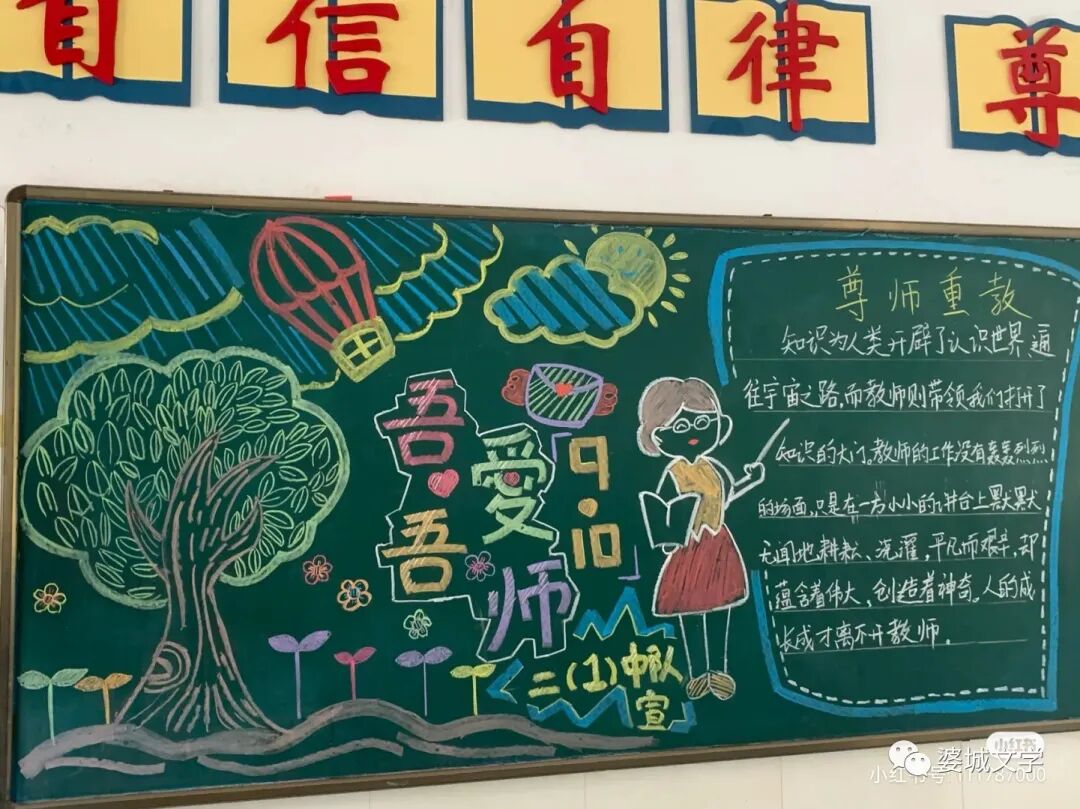 自信自律 尊
吾爱吾师
「9.10」
二(1)中队
宣
尊师重教
知识为人类开辟了认识世界通
往宇宙之路,而教师则带领我们打开了
知识的大门,教师的工作没有轰轰烈烈
的场面,只是在一方小小的讲台上默默
无闻地耕耘、浇灌,平凡而艰辛,却
蕴含着伟大,创造着神奇。人的成
长成才离不开教师。
小红书
婺城文学